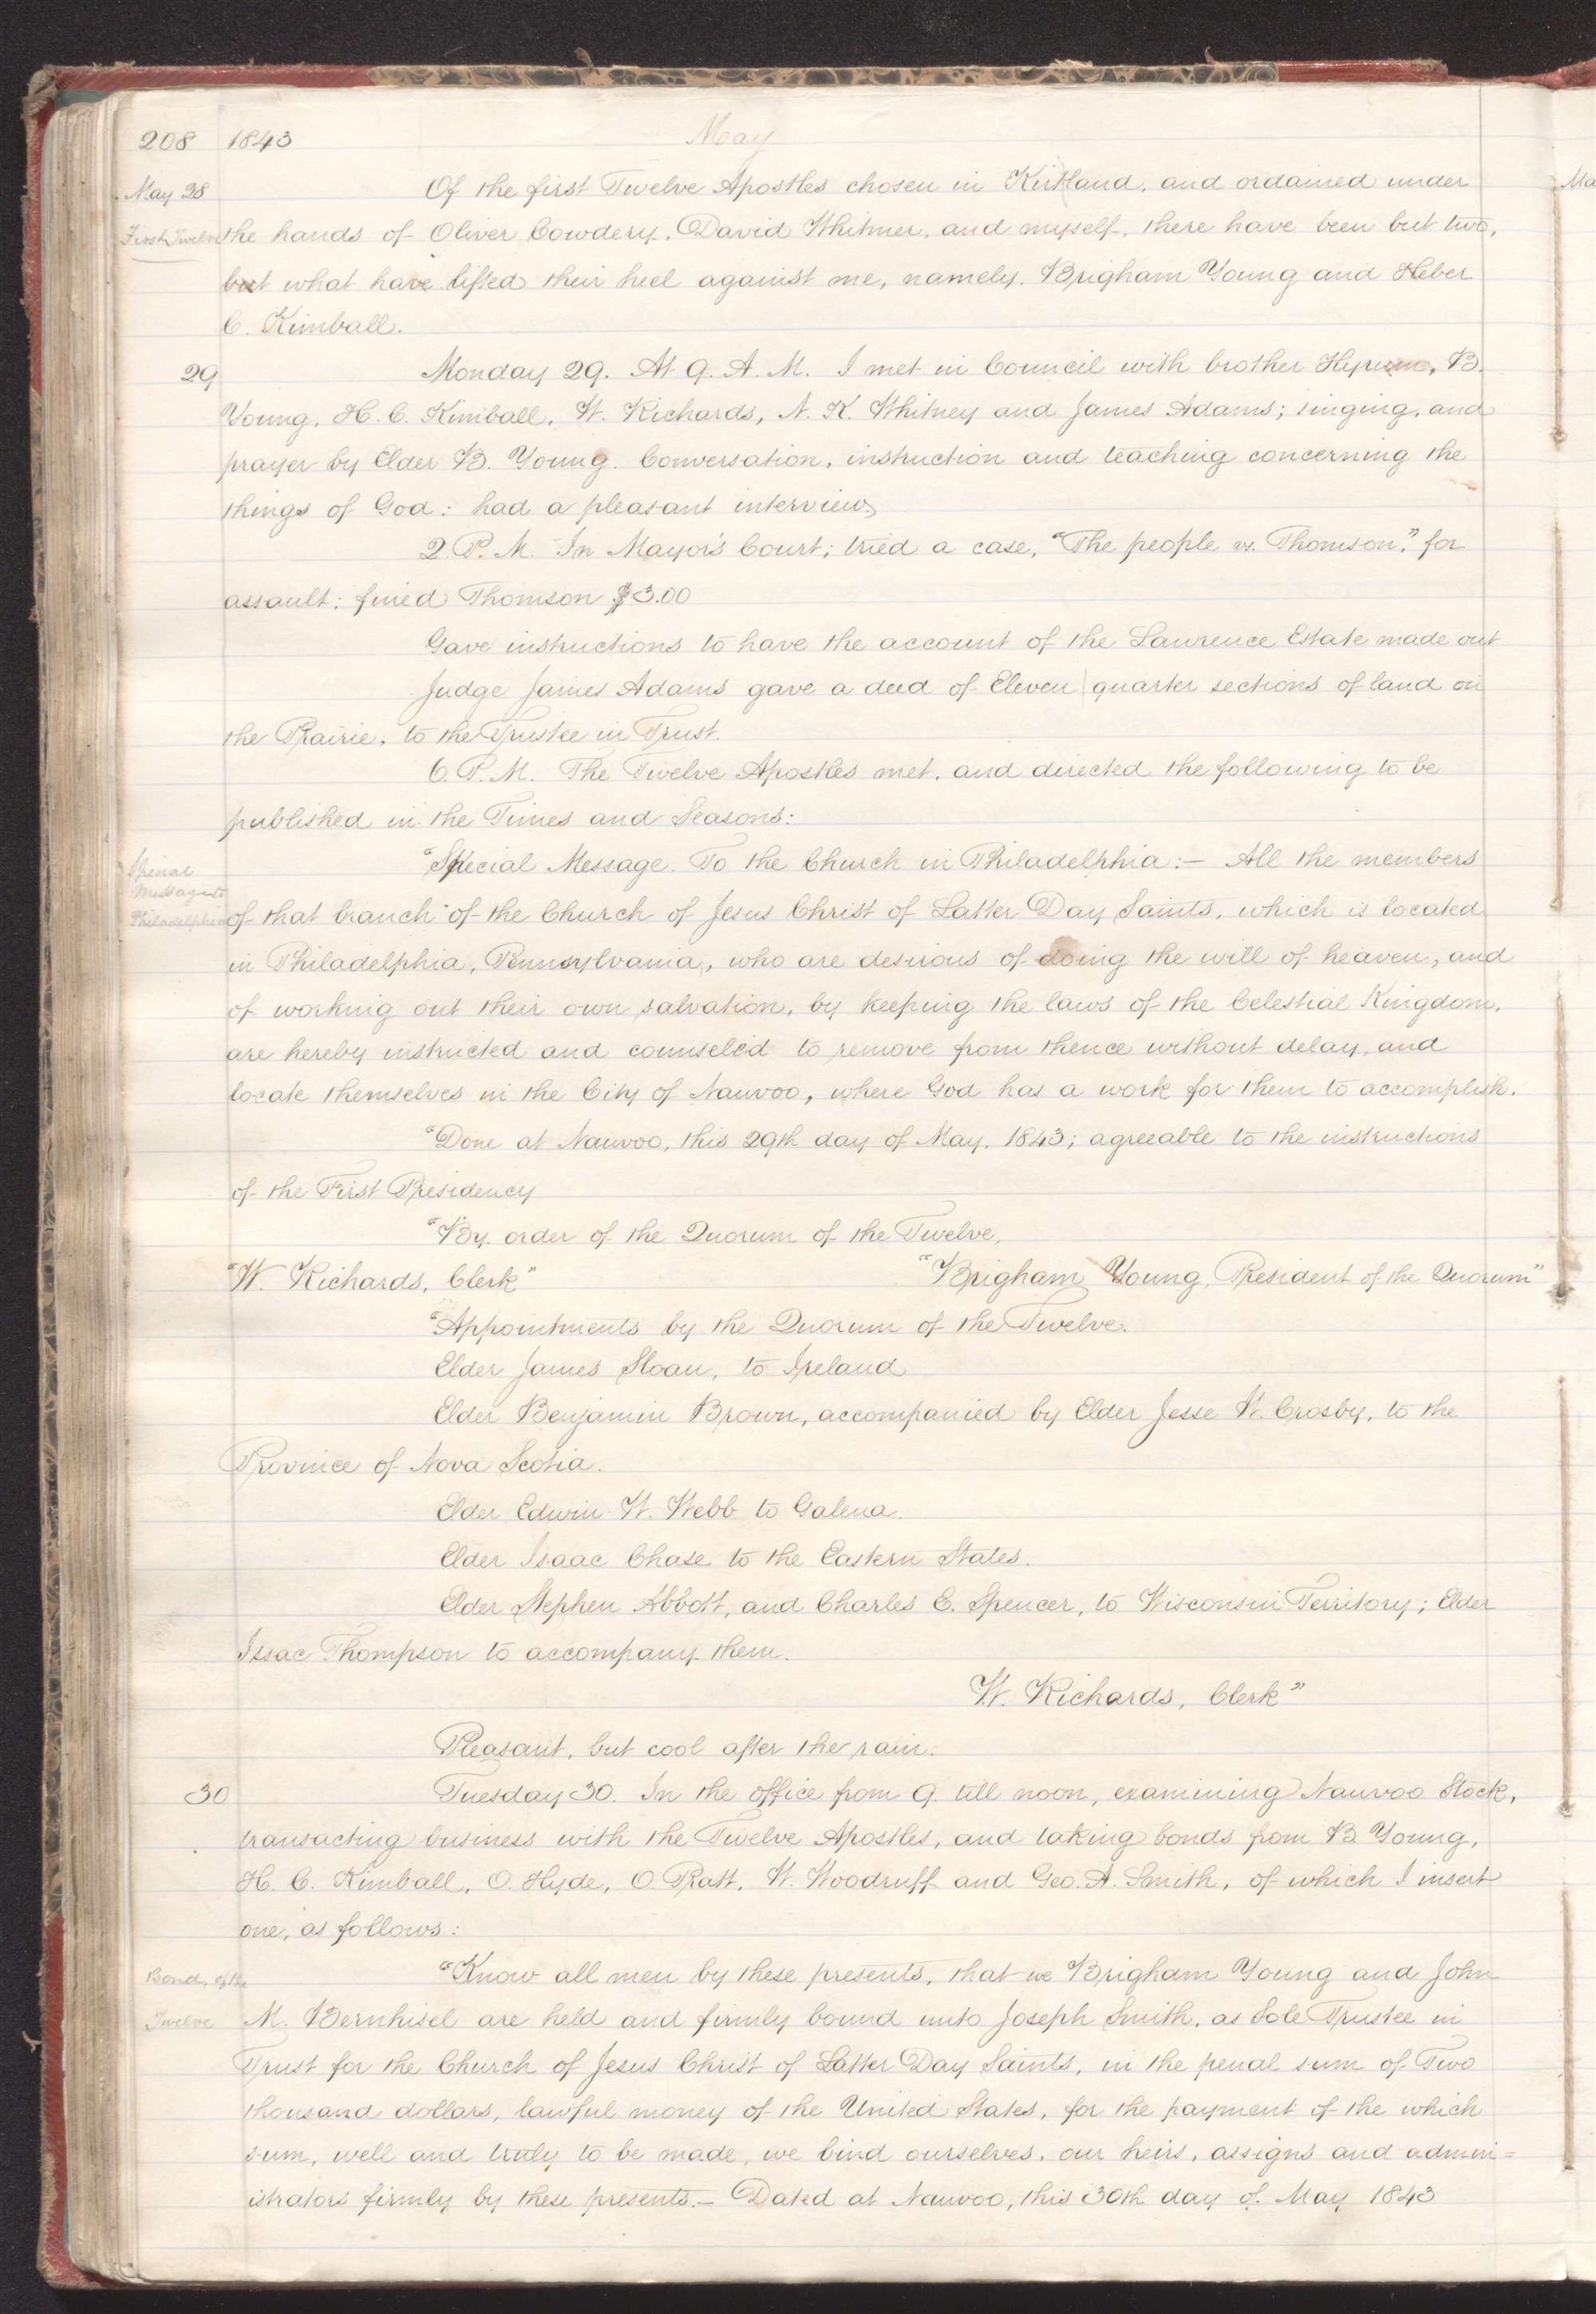 208 1843 May
May 28 Of the first Twelve Apostles chosen in Kirtland, and ordained under
First Twelve the hands of Oliver Cowdery, David Whitmer, and myself, there have been but two,
but what have lifted their heel against me, namely Brigham Young and Heber
C. Kimball.
29 Monday 29. At 9. A. M. I met in Council with brother Hyrum, B.
Young, H. C. Kimball, W. Richards, N. K. Whitney and James Adams; singing, and
prayer by Elder B. Young. Conversation, instruction and teaching concerning the
things of God: had a pleasant interview,
2. P. M. In Mayor's Court; tried a case, "The people vs. Thomson," for
assault: fined Thomson $3.00
Gave instructions to have the account of the Lawrence Estate made out
Judge James Adams gave a deed of Eleven quarter sections of land on
the Prairie, to the Trustee in Trust.
6. P. M. The Twelve Apostles met, and directed the following to be
published in the Times and Seasons:
"Special Message. To the Church in Philadelphia:— All the members
Special
Message to
Philadelphia of that branch of the Church of Jesus Christ of Latter Day Saints, which is located
in Philadelphia, Pennsylvania, who are desirous of doing the will of heaven, and
of working out their own salvation, by keeping the laws of the Celestial Kingdom,
are hereby instructed and counseled to remove from thence without delay, and
locate themselves in the City of Nauvoo, where God has a work for them to accomplish.
"Done at Nauvoo, this 29th day of May, 1843; agreeable to the instructions
of the First Presidency
"By order of the Quorum of the Twelve,
"W. Richards, Clerk" "Brigham Young, President of the Quorum"
"Appointments by the Quorum of the Twelve.
Elder James Sloan, to Ireland
Elder Benjamin Brown, accompanied by Elder Jesse W. Crosby, to the
Province of Nova Scotia.
Elder Edwin W. Webb to Galena.
Elder Isaac Chase to the Eastern States.
Elder Stephen Abbott, and Charles E. Spencer, to Wisconsin Territory; Elder
Issac Thompson to accompany them.
W. Richards, Clerk"
Pleasant, but cool after the rain.
30 Tuesday 30. In the office from 9 till noon, examining Nauvoo Stock,
transacting business with the Twelve Apostles, and taking bonds from B Young,
H. C. Kimball, O. Hyde, O. Pratt, W. Woodruff and Geo. A. Smith, of which I insert
one, as follows:
Bond, of the "Know all men by these presents, that we Brigham Young and John
Twelve M. Bernhisel are held and firmly bound unto Joseph Smith, as Sole Trustee in
Trust for the Church of Jesus Christ of Latter Day Saints, in the penal sum of Two
thousand dollars, lawful money of the United States, for the payment of the which
sum, well and truly to be made, we bind ourselves, our heirs, assigns and admin=
istrators firmly by these presents.— Dated at Nauvoo, this 30th day of May 1843
Ma